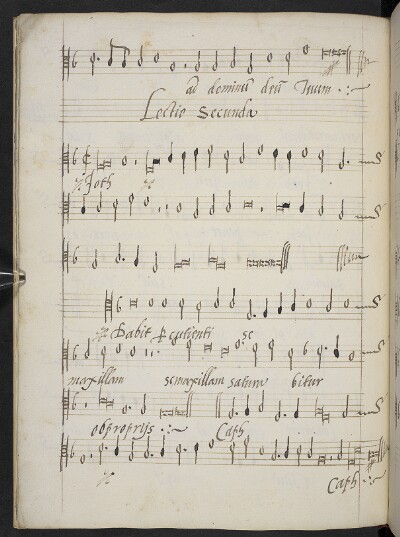 ad dominū deū tuum
Lectio Secunda
Joth
Dabit Percutienti se
maxillam se maxillam satura bitur
obproprijs
Caph
Caph